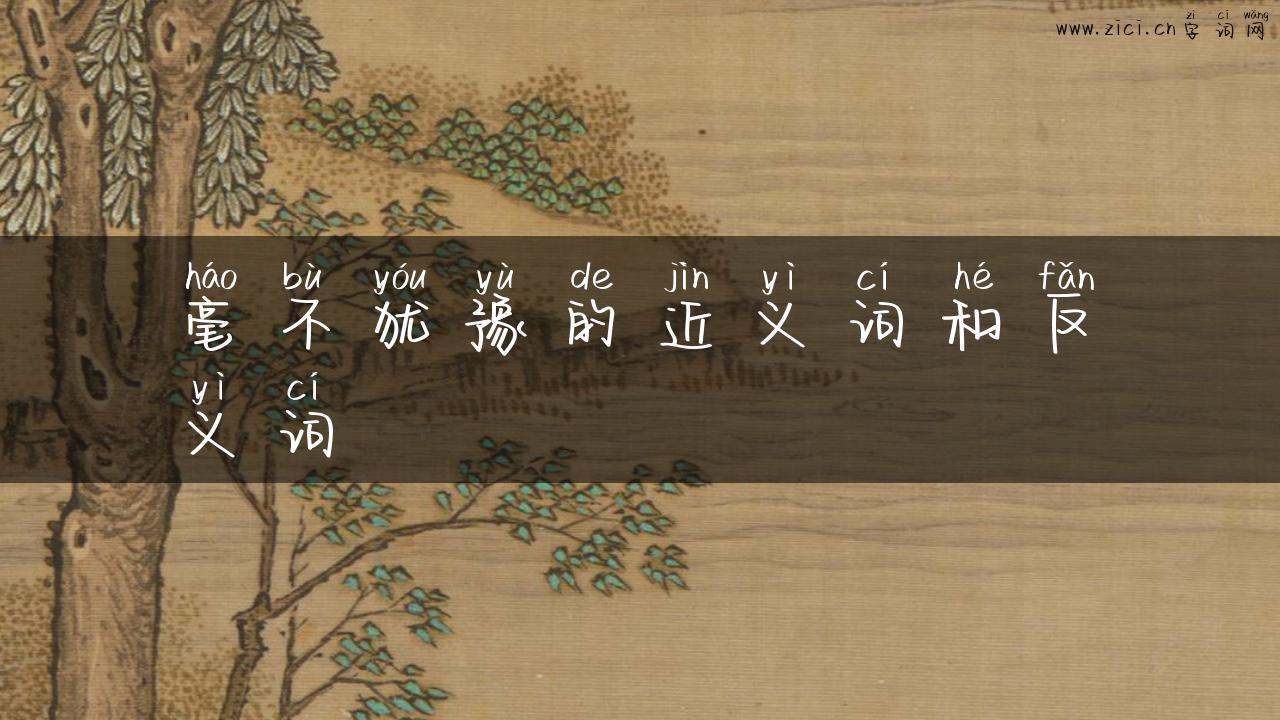 zì cí wǎng
www.zici.cn 字词网
háo bù yóu yù de jìn yì cí hé fǎn
毫不犹豫的近义词和反
yì cí
义词